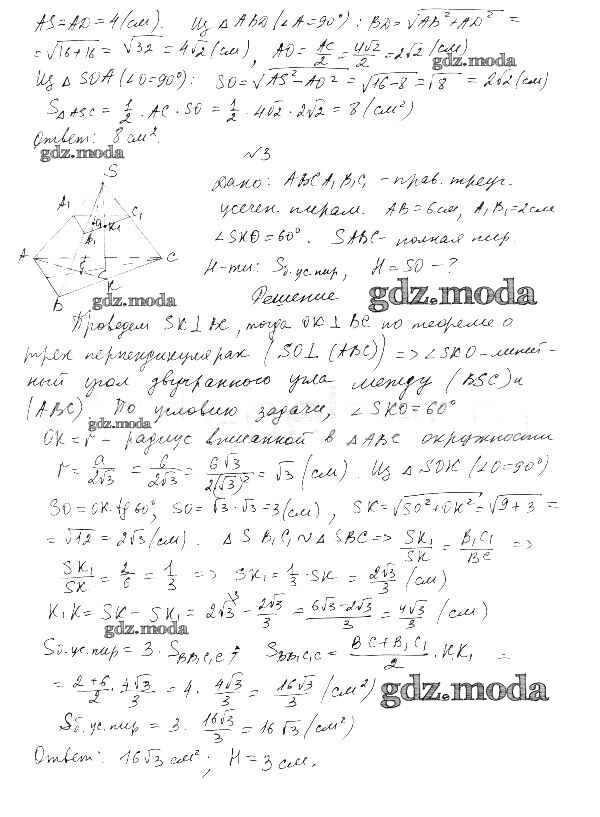 AS = AD = 4 (см). Из △ABD (∠A = 90°): BD = √AB² + AD² =
= √16+16 = √32 = 4√2 (см), AO = AC/2 = 4√2/2 = 2√2 (см)
gdz.moda
Из △SOA (∠O = 90°): SO = √AS² − AO² = √16−8 = √8 = 2√2 (см)
S△ASC = 1/2 · AC · SO = 1/2 · 4√2 · 2√2 = 8 (см²)
Ответ: 8 см².
gdz.moda
№3
S
A₁ C₁ K₁ B₁
A C B K
Дано: ABCA₁B₁C₁ – прав. треуг.
усечен. пирам. AB = 6 см, A₁B₁ = 2 см
∠SKO = 60°. SABC – полная пир.
Н-ти: Sб.ус.пир, H = SO – ?
gdz.moda
Решение
gdz.moda
Проведем SK ⊥ BC, тогда OK ⊥ BC по теореме о
трех перпендикулярах (SO ⊥ (ABC)) => ∠SKO – линей-
ный угол двугранного угла между (BSC) и
(ABC). По условию задачи, ∠SKO = 60°
gdz.moda
OK = r – радиус вписанной в △ABC окружности
r = a/2√3 = 6/2√3 = 6√3/2(√3)² = √3 (см). Из △SOK (∠O = 90°)
SO = OK · tg 60°, SO = √3 · √3 = 3 (см), SK = √SO² + OK² = √9 + 3 =
= √12 = 2√3 (см). △SB₁C₁ ∾ △SBC => SK₁/SK = B₁C₁/BC =>
SK₁/SK = 2/6 = 1/3 => SK₁ = 1/3 · SK = 2√3/3 (см)
K₁K = SK − SK₁ = 2√3 − 2√3/3 = 6√3−2√3/3 = 4√3/3 (см)
gdz.moda
Sб.ус.пир = 3 · SBB₁C₁C; SBB₁C₁C = BC + B₁C₁/2 · KK₁ =
= 2+6/2 · 4√3/3 = 4 · 4√3/3 = 16√3/3 (см²)
gdz.moda
Sб.ус.пир = 3 · 16√3/3 = 16√3 (см²)
Ответ: 16√3 см²; H = 3 см.